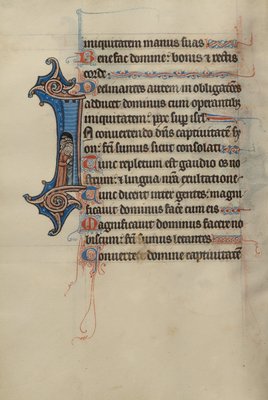 iniquitatem manus suas
Benefac domine: bonis & rectis
corde
Declinantes autem in obligatoēs
adducet dominus cum operantibȝ
iniquitatem: pax sup isrl
In convertendo dn̄s captivitatē sy
on: facti sumus sicut consolati
Tunc repletum est gaudio os no
strum: & lingua nr̄a exultatione
Tunc dicent inter gentes: magni
ficavit dominus facere cum eis
Magnificavit dominus facere no
biscum: facti sumus letantes
Converte domine captivitatē